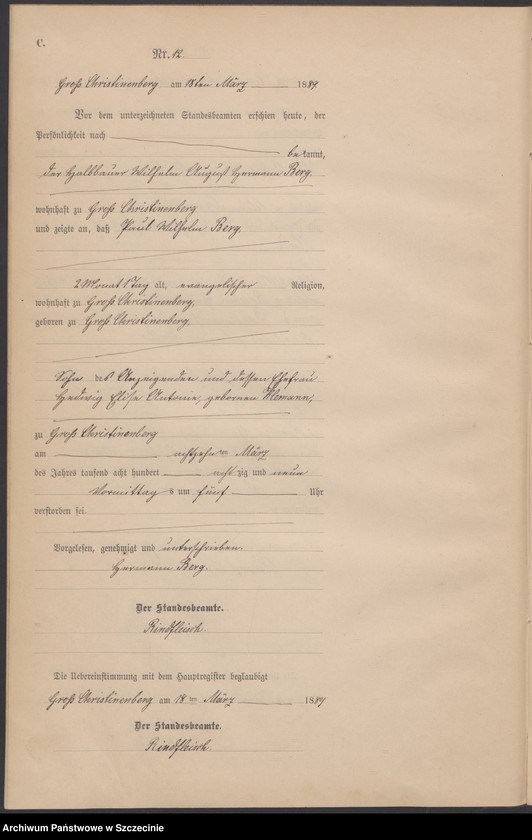 C.
Nr. 12.
Groß Christinenberg am 18ten März 1889.
Vor dem unterzeichneten Standesbeamten erschien heute, der
Persönlichkeit nach
bekannt,
der Halbbauer Wilhelm August Hermann Berg,
wohnhaft zu Groß Christinenberg
und zeigte an, daß Paul Wilhelm Berg,
2 Monat 1 Tag alt, evangelischer Religion,
wohnhaft zu Groß Christinenberg,
geboren zu Groß Christinenberg,
Sohn des Anzeigenden und dessen Ehefrau
Hedwig Elise Antonie, gebornen
zu Groß Christinenberg
am achtzehnten März
des Jahres tausend acht hundert achtzig und neun
Vormittags um fünf Uhr
verstorben sei.
Vorgelesen, genehmigt und unterschrieben.
Hermann Berg.
Der Standesbeamte.
Rindfleisch.
Die Uebereinstimmung mit dem Hauptregister beglaubigt
Groß Christinenberg am 18ten März 1889
Der Standesbeamte.
Rindfleisch.
Archiwum Państwowe w Szczecinie